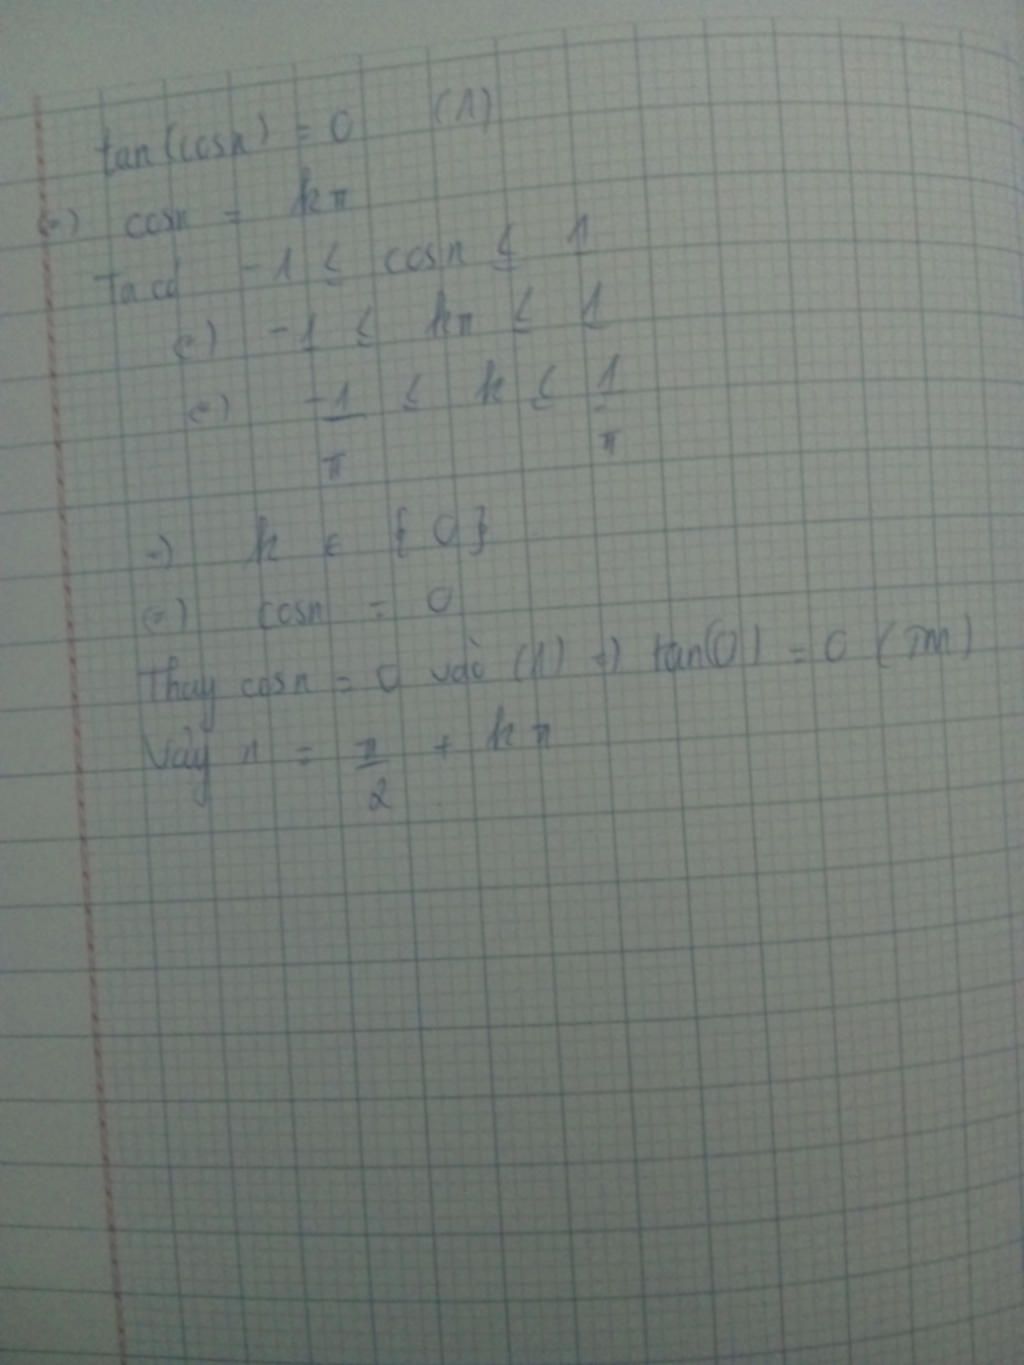 tan(cosx) = 0 (1)
(=) cosx = kπ
Ta có -1 ≤ cosx ≤ 1
(=) -1 ≤ kπ ≤ 1
(=) -1/π ≤ k ≤ 1/π
=) k ∈ {0}
(=) cosx = 0
Thay cosx = 0 vào (1) =) tan(0) = 0 (TM)
Vậy x = π/2 + kπ